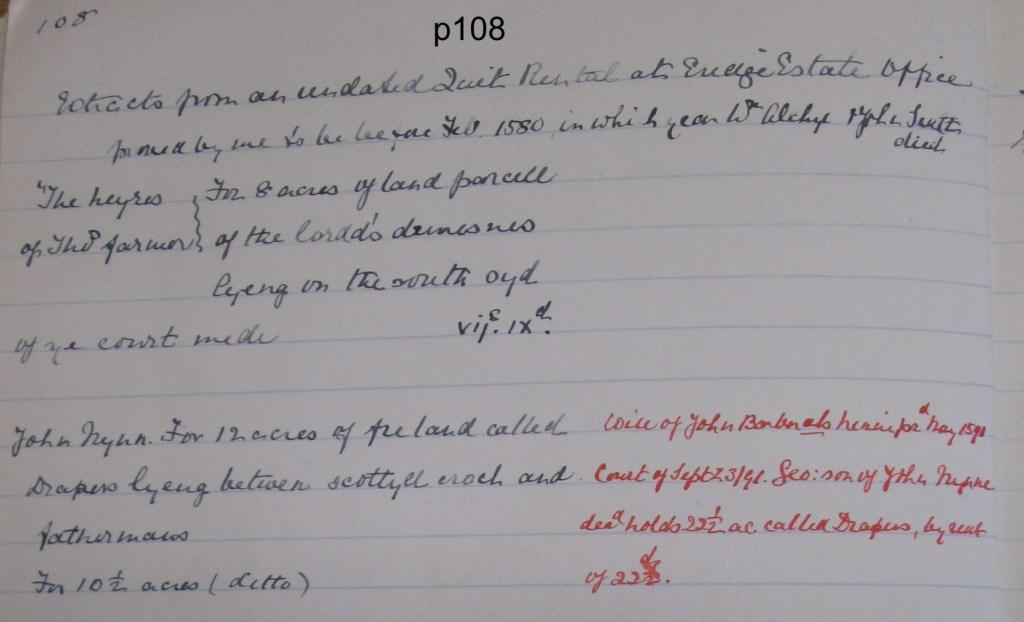 108
p108
Extracts from an undated Quit Rental at Estate Office
proved by me to be before Feb. 1580, in which year Wm & John
died
"The heyres } For 8 acres of land parcell
of Thos farmor } of the lordd's demesnes
lyeng on the south syd
of ye court mede vijs. ixd.
John Nynn. For 12 acres of fre land called
Drapers lyeng betwen scottyll croch and
fathermans
For 10½ acres (ditto)
Will of John als prd May 1591
Court of Sept 23/91. Geo: son of John
decd holds 22½ ac called Drapers, by rent
of 22d.